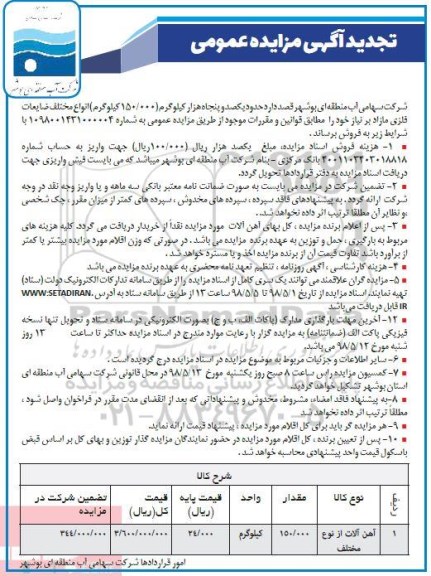 تجدید آگهی مزایده عمومی
شرکت سهامی آب منطقه ای بوشهر قصد دارد حدود یکصد و پنجاه هزار کیلوگرم (۱۵۰/۰۰۰ کیلوگرم) انواع مختلف ضایعات
فلزی مازاد بر نیاز خود را مطابق قوانین و مقررات موجود از طریق مزایده عمومی به شماره ۱۰۹۸۰۰۱۴۳۱۰۰۰۰۰۴ با
شرایط زیر به فروش برساند.
۱- هزینه فروش اسناد مزایده، مبلغ یکصد هزار ریال (۱۰۰/۰۰۰ریال) جهت واریز به حساب شماره
بانک مرکزی - بنام شرکت آب منطقه ای بوشهر میباشد که می بایست فیش واریزی جهت
دریافت اسناد مزایده به دفتر قراردادها تحویل گردد.
۲- تضمین شرکت در مزایده می بایست به صورت ضمانت نامه معتبر بانکی سه ماهه و یا واریز وجه نقد در وجه
شرکت ارائه گردد. به پیشنهادهای فاقد سپرده، سپرده های مخدوش، سپرده های کمتر از میزان مقرر، چک شخصی
و نظایر آن مطلقا ترتیب اثر داده نخواهد شد.
۳- پس از اعلام برنده مزایده، کل بهای آهن آلات مورد مزایده نقداً از خریدار دریافت می گردد. کلیه هزینه های
مربوط به بارگیری، حمل و توزین به عهده برنده مزایده می باشد. در صورتی که وزن اقلام مورد مزایده بیشتر یا کمتر
از برآورد باشد تفاوت قیمت آن از برنده مزایده اخذ و یا مسترد خواهد شد.
۴- هزینه کارشناسی، آگهی روزنامه، تنظیم تعهد نامه محضری به عهده برنده مزایده می باشد
۵- مزایده گران علاقمند می توانند یک سری کامل از اسناد مزایده را از طریق سامانه تدارکات الکترونیک دولت (ستاد)
تهیه نمایند، اسناد مزایده از تاریخ ۹۸/۵/۱ تا ۹۸/۵/۵ ساعت ۱۳ از طریق سامانه ستاد به آدرس WWW.SETADIRAN.
IR قابل دریافت می باشد
۱۲- آخرین مهلت بارگذاری مدارک (پاکات الف، ب و ج) بصورت الکترونیکی در سامانه ستاد و تحویل تنها نسخه
فیزیکی پاکت الف (ضمانتنامه) به مزایده گزار با رعایت موارد مندرج در اسناد مزایده حداکثر تا ساعت ۱۳ روز
شنبه مورخ ۹۸/۵/۱۲ می باشد.
۶- سایر اطلاعات و جزئیات مربوط به موضوع مزایده در اسناد مزایده درج گردیده است.
۷- کمسیون مزایده راس ساعت ۸ صبح روز یکشنبه مورخ ۹۸/۵/۱۳ در محل قانونی شرکت سهامی آب منطقه ای
استان بوشهر تشکیل خواهد گردید.
۸- به پیشنهاد فاقد امضاء، مشروط، مخدوش و پیشنهاداتی که بعد از انقضای مدت مقرر در فراخوان واصل شود،
مطلقا ترتیب اثر داده نخواهد شد
۹- هر مزایده گر باید برای کل اقلام مورد مزایده، پیشنهاد قیمت ارائه نماید.
۱۰- پس از تعیین برنده، کل اقلام مورد مزایده در حضور نمایندگان مزایده گذار توزین و بهای کل بر اساس قبض
باسکول قیمت واحد پیشنهادی محاسبه خواهد شد.
شرح کالا
ردیف نوع کالا مقدار واحد قیمت پایه (ریال) قیمت کل(ریال) تضمین شرکت در مزایده
۱ آهن آلات از نوع مختلف ۱۵۰/۰۰۰ کیلوگرم ۲۴/۰۰۰ ۳/۶۰۰/۰۰۰/۰۰۰ ۳۴۴/۰۰۰/۰۰۰
امور قراردادها شرکت سهامی آب منطقه ای بوشهر
۰۲۱-۸۸۳۴۹۶۷۰-۵